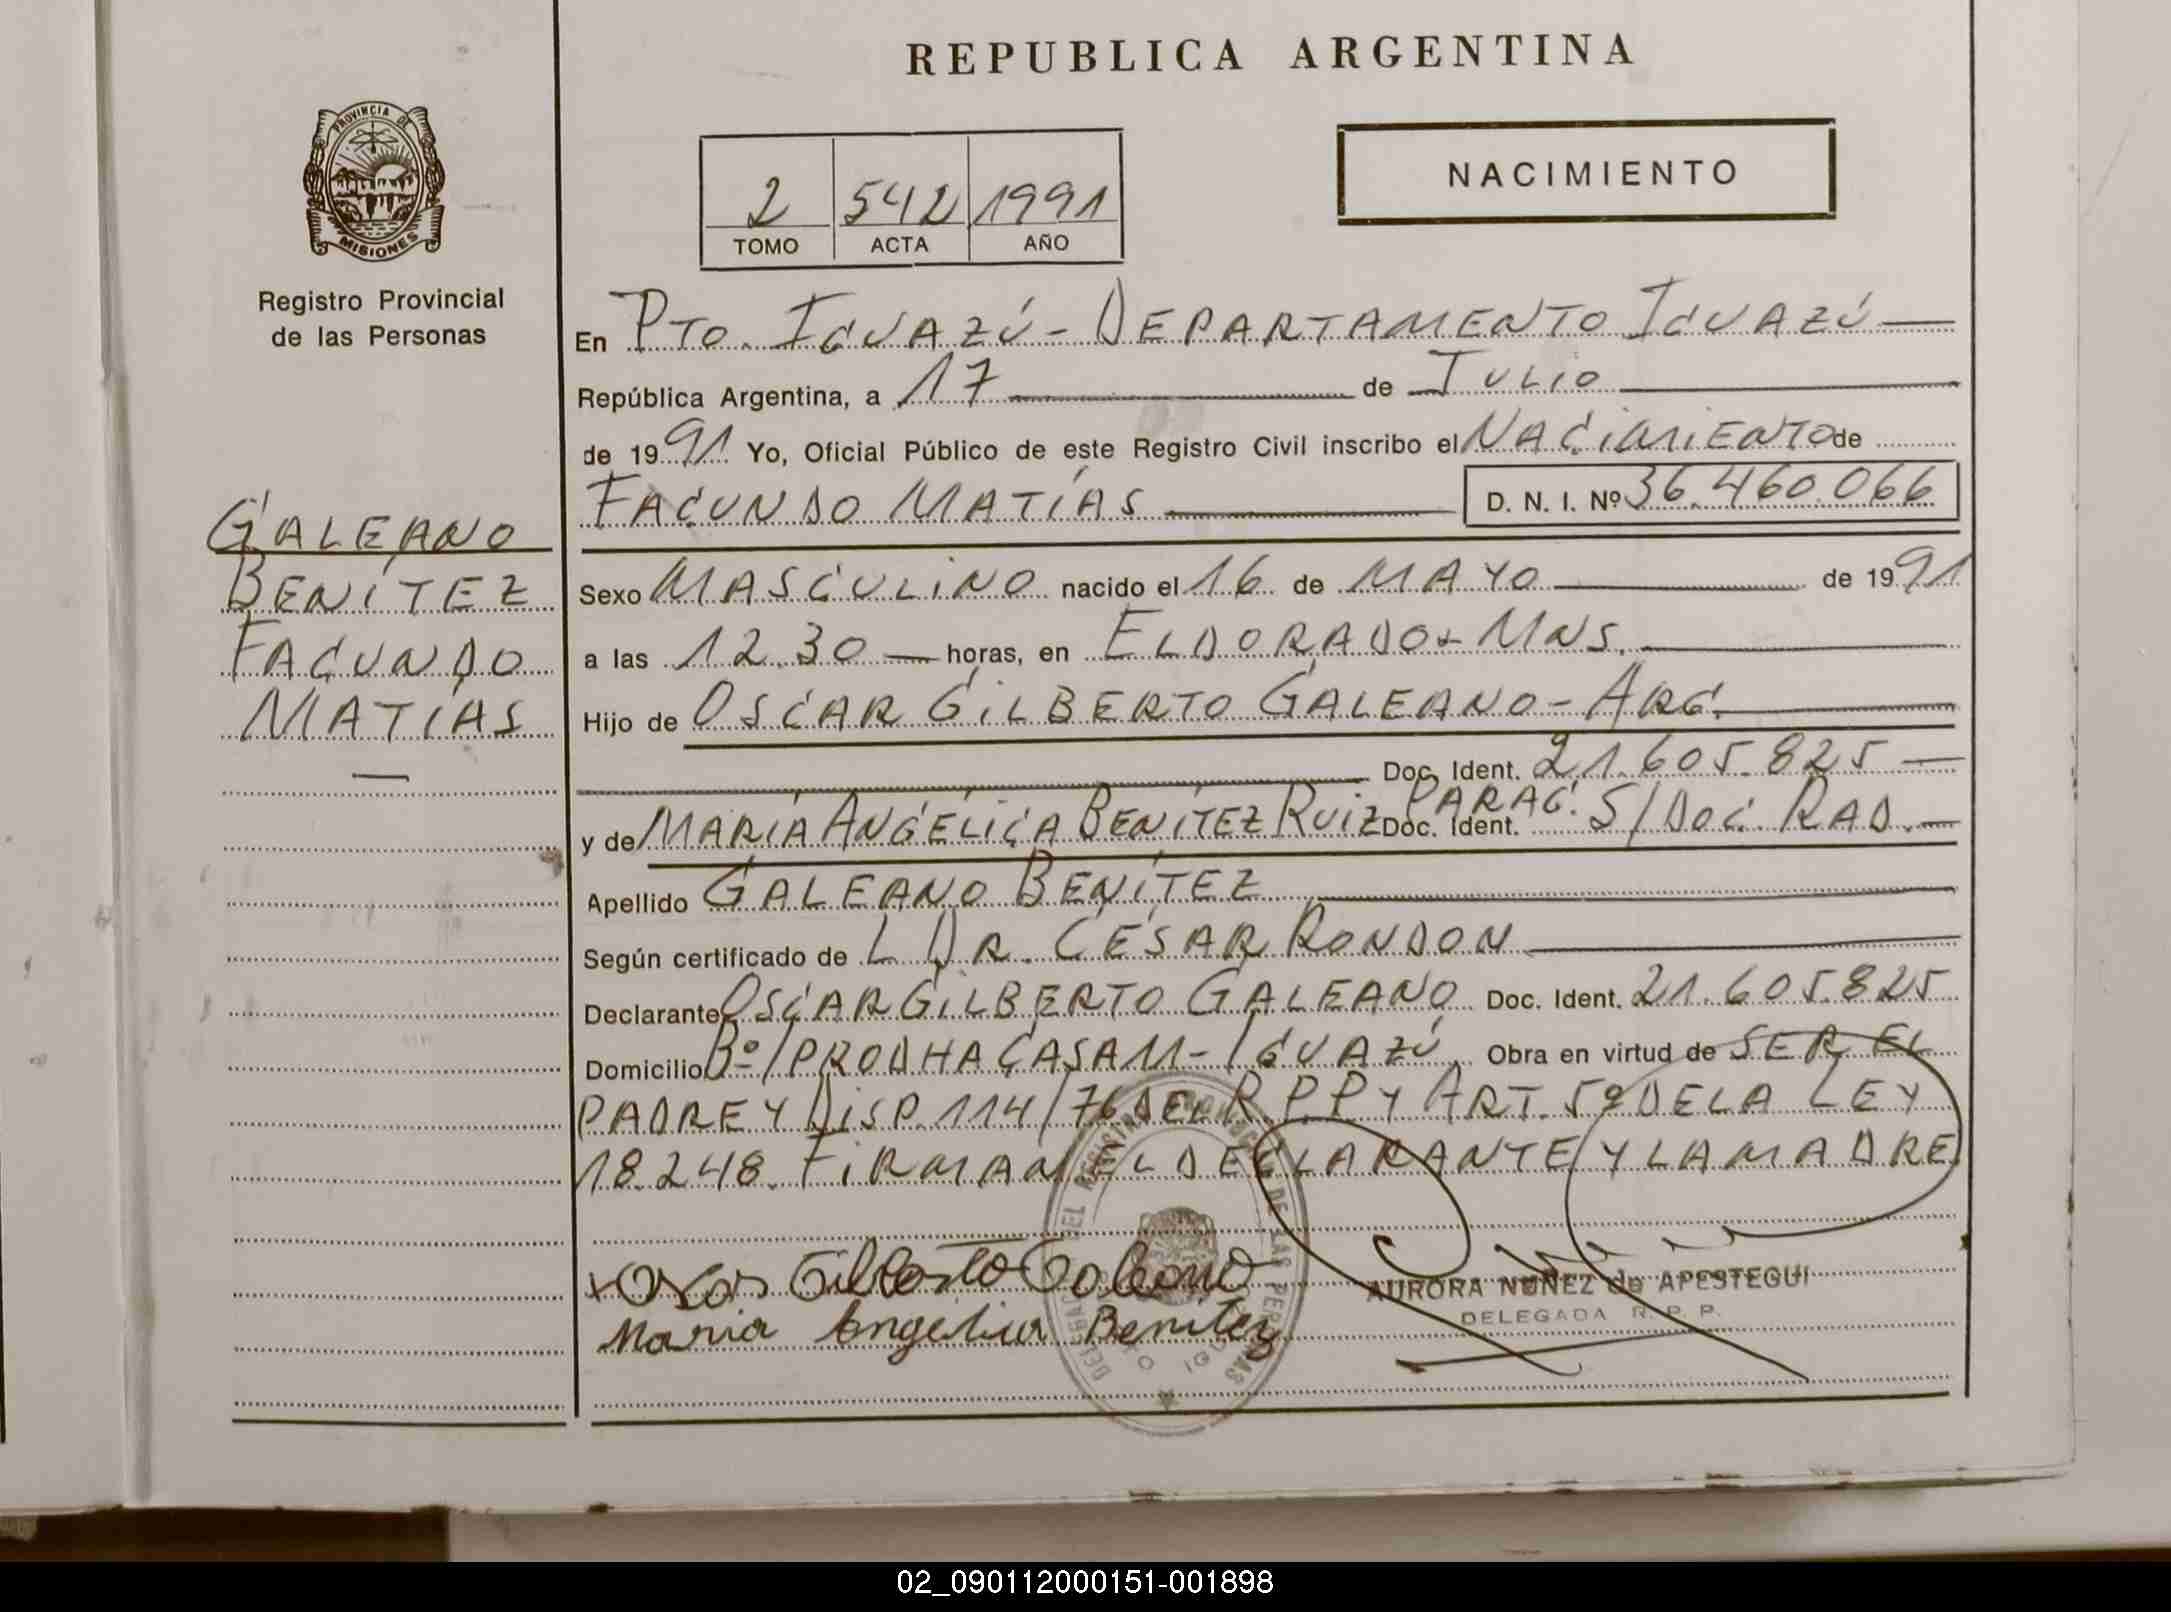 REPUBLICA ARGENTINA
PROVINCIA DE
MISIONES
Registro Provincial
de las Personas
NACIMIENTO
2 542 1991
TOMO ACTA AÑO
En Pto. Iguazú - Departamento Iguazú —
República Argentina, a 17 — de Julio —
de 1991 Yo, Oficial Público de este Registro Civil inscribo el Nacimiento de
Facundo Matías — D. N. I. Nº 36.460.066
Galeano
Benítez
Facundo
Matías
—
Sexo Masculino nacido el 16 de Mayo — de 1991
a las 12.30 — horas, en Eldorado - Mns. —
Hijo de Oscar Gilberto Galeano - Arg. —
— Doc. Ident. 21.605.825 —
y de María Angélica Benítez Ruiz Parag. Doc. Ident. S/Doc. Rad. —
Apellido Galeano Benítez —
Según certificado de L Dr. César Rondon —
Declarante Oscar Gilberto Galeano Doc. Ident. 21.605.825
Domicilio Bº/Prodha Casa 11 - Iguazú Obra en virtud de ser el
padre y Disp. 114/76 del R.P.P y Art. 5º de la Ley
18.248. Firman el declarante y la madre
Oscar Gilberto Galeano
Maria Angelica Benitez
AURORA NUÑEZ de APESTEGUI
DELEGADA R. P. P.
02_090112000151-001898